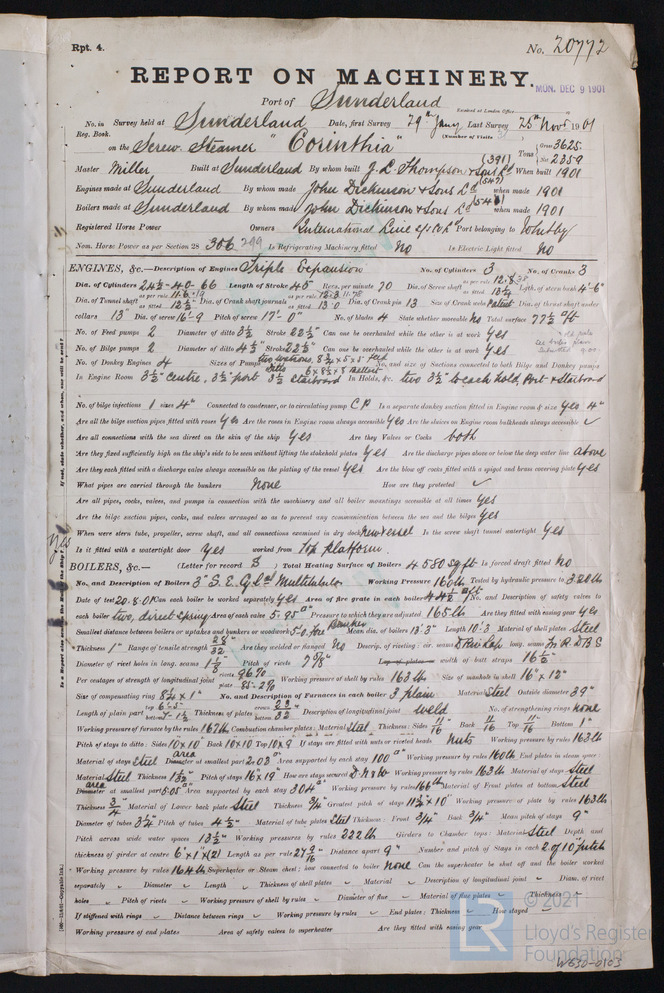 Rpt. 4.
No. 20772
REPORT ON MACHINERY.
MON. DEC 9 1901
Port of Sunderland
Received at London Office
No. in Reg. Book. Survey held at Sunderland Date, first Survey 29th Jany Last Survey 25th Novr 1901
(Number of Visits
on the Screw Steamer "Corinthia" Tons Gross 3625 Net 2359
Master Miller Built at Sunderland By whom built J. L. Thompson & Sons Ld (391) When built 1901
Engines made at Sunderland By whom made John Dickinson & Sons Ld (547) when made 1901
Boilers made at Sunderland By whom made John Dickinson & Sons Ld when made 1901
Registered Horse Power Owners International Line Port belonging to Whitby
Nom. Horse Power as per Section 28 306 299 Is Refrigerating Machinery fitted No Is Electric Light fitted No
ENGINES, &c.—Description of Engines Triple Expansion No. of Cylinders 3 No. of Cranks 3
Dia. of Cylinders 24½ - 40 - 66 Length of Stroke 45 Revs. per minute 70 Dia. of Screw shaft as per rule as fitted 13½ Lgth. of stern bush 4'-6"
Dia. of Tunnel shaft as per rule as fitted 12½ Dia. of Crank shaft journals as per rule as fitted 13.0 Dia. of Crank pin 13 Size of Crank webs Patent Dia. of thrust shaft under
collars 13" Dia. of screw 16'-9 Pitch of screw 17'-0" No. of blades 4 State whether moveable No Total surface 77½ sq ft
No. of Feed pumps 2 Diameter of ditto 3½ Stroke 22½" Can one be overhauled while the other is at work Yes
No. of Bilge pumps 2 Diameter of ditto 4½ Stroke 22½" Can one be overhauled while the other is at work Yes
No. of Donkey Engines 4 Sizes of Pumps No. and size of Suctions connected to both Bilge and Donkey pumps
In Engine Room 3½" centre, 3½" port 3½ starboard In Holds, &c. two 3½" to each hold, Port & Starboard
No. of bilge injections 1 sizes 4" Connected to condenser, or to circulating pump C.P. Is a separate donkey suction fitted in Engine room & size Yes 4"
Are all the bilge suction pipes fitted with roses Yes Are the roses in Engine room always accessible Yes Are the sluices on Engine room bulkheads always accessible ✓
Are all connections with the sea direct on the skin of the ship Yes Are they Valves or Cocks both
Are they fixed sufficiently high on the ship's side to be seen without lifting the stokehold plates Yes Are the discharge pipes above or below the deep water line above
Are they each fitted with a discharge valve always accessible on the plating of the vessel Yes Are the blow off cocks fitted with a spigot and brass covering plate Yes
What pipes are carried through the bunkers None How are they protected ✓
Are all pipes, cocks, valves, and pumps in connection with the machinery and all boiler mountings accessible at all times Yes
Are the bilge suction pipes, cocks, and valves arranged so as to prevent any communication between the sea and the bilges Yes
When were stern tube, propeller, screw shaft, and all connections examined in dry dock New vessel Is the screw shaft tunnel watertight Yes
Is it fitted with a watertight door Yes worked from Top platform
BOILERS, &c.— (Letter for record S) Total Heating Surface of Boilers 4580 sq ft Is forced draft fitted No
No. and Description of Boilers 3 S.E. Cyl Multitubular Working Pressure 160 lb Tested by hydraulic pressure to 320 lb
Date of test 20.8.01 Can each boiler be worked separately Yes Area of fire grate in each boiler 44½ sq ft No. and Description of safety valves to
each boiler two, direct spring Area of each valve 5.95" Pressure to which they are adjusted 165 lb Are they fitted with easing gear Yes
Smallest distance between boilers or uptakes and bunkers or woodwork Mean dia. of boilers 13'-3" Length 10'-3 Material of shell plates Steel
Thickness 1" Range of tensile strength 28/32 Are they welded or flanged No Descrip. of riveting: cir. seams D Riv Lap long. seams Tr. R. D B S
Diameter of rivet holes in long. seams 1⅛ Pitch of rivets 7⅝" Lap of plates or width of butt straps 16½"
Per centages of strength of longitudinal joint rivets 96.70 plate 85.2% Working pressure of shell by rules 163 lb Size of manhole in shell 16" × 12"
Size of compensating ring 8¼ × 1" No. and Description of Furnaces in each boiler 3 plain Material Steel Outside diameter 39"
Length of plain part top 6'-5" bottom 7-1½ Thickness of plates crown bottom Description of longitudinal joint weld No. of strengthening rings none
Working pressure of furnace by the rules 167 lb Combustion chamber plates: Material Steel Thickness: Sides 11/16 Back 11/16 Top 11/16 Bottom 1"
Pitch of stays to ditto: Sides 10×10 Back 10×10 Top 10×9 If stays are fitted with nuts or riveted heads Nuts Working pressure by rules 163 lb
Material of stays Steel area Diameter at smallest part 2.03" Area supported by each stay 100" Working pressure by rules 160 lb End plates in steam space:
Material Steel Thickness 1 3/32" Pitch of stays 16×19" How are stays secured D N & W Working pressure by rules 163 lb Material of stays Steel
area Diameter at smallest part 5.05" Area supported by each stay 304" Working pressure by rules 166 lb Material of Front plates at bottom Steel
Thickness ¾ Material of Lower back plate Steel Thickness ¾" Greatest pitch of stays 11½ × 10" Working pressure of plate by rules 163 lb
Diameter of tubes 3¼ Pitch of tubes 4½" Material of tube plates Steel Thickness: Front ¾" Back ¾" Mean pitch of stays 9"
Pitch across wide water spaces 13½" Working pressures by rules 222 lb Girders to Chamber tops: Material Steel Depth and
thickness of girder at centre 6"×1"×(2) Length as per rule 27 9/16 Distance apart 9" Number and pitch of Stays in each 2 of 10" pitch
Working pressure by rules 164 lb Superheater or Steam chest; how connected to boiler None Can the superheater be shut off and the boiler worked
separately Diameter Length Thickness of shell plates Material Description of longitudinal joint Diam. of rivet
holes Pitch of rivets Working pressure of shell by rules Diameter of flue Material of flue plates Thickness
If stiffened with rings Distance between rings Working pressure by rules End plates: Thickness How stayed
Working pressure of end plates Area of safety valves to superheater Are they fitted with easing gear
© 2021
Lloyd's Register
Foundation
W630-0103